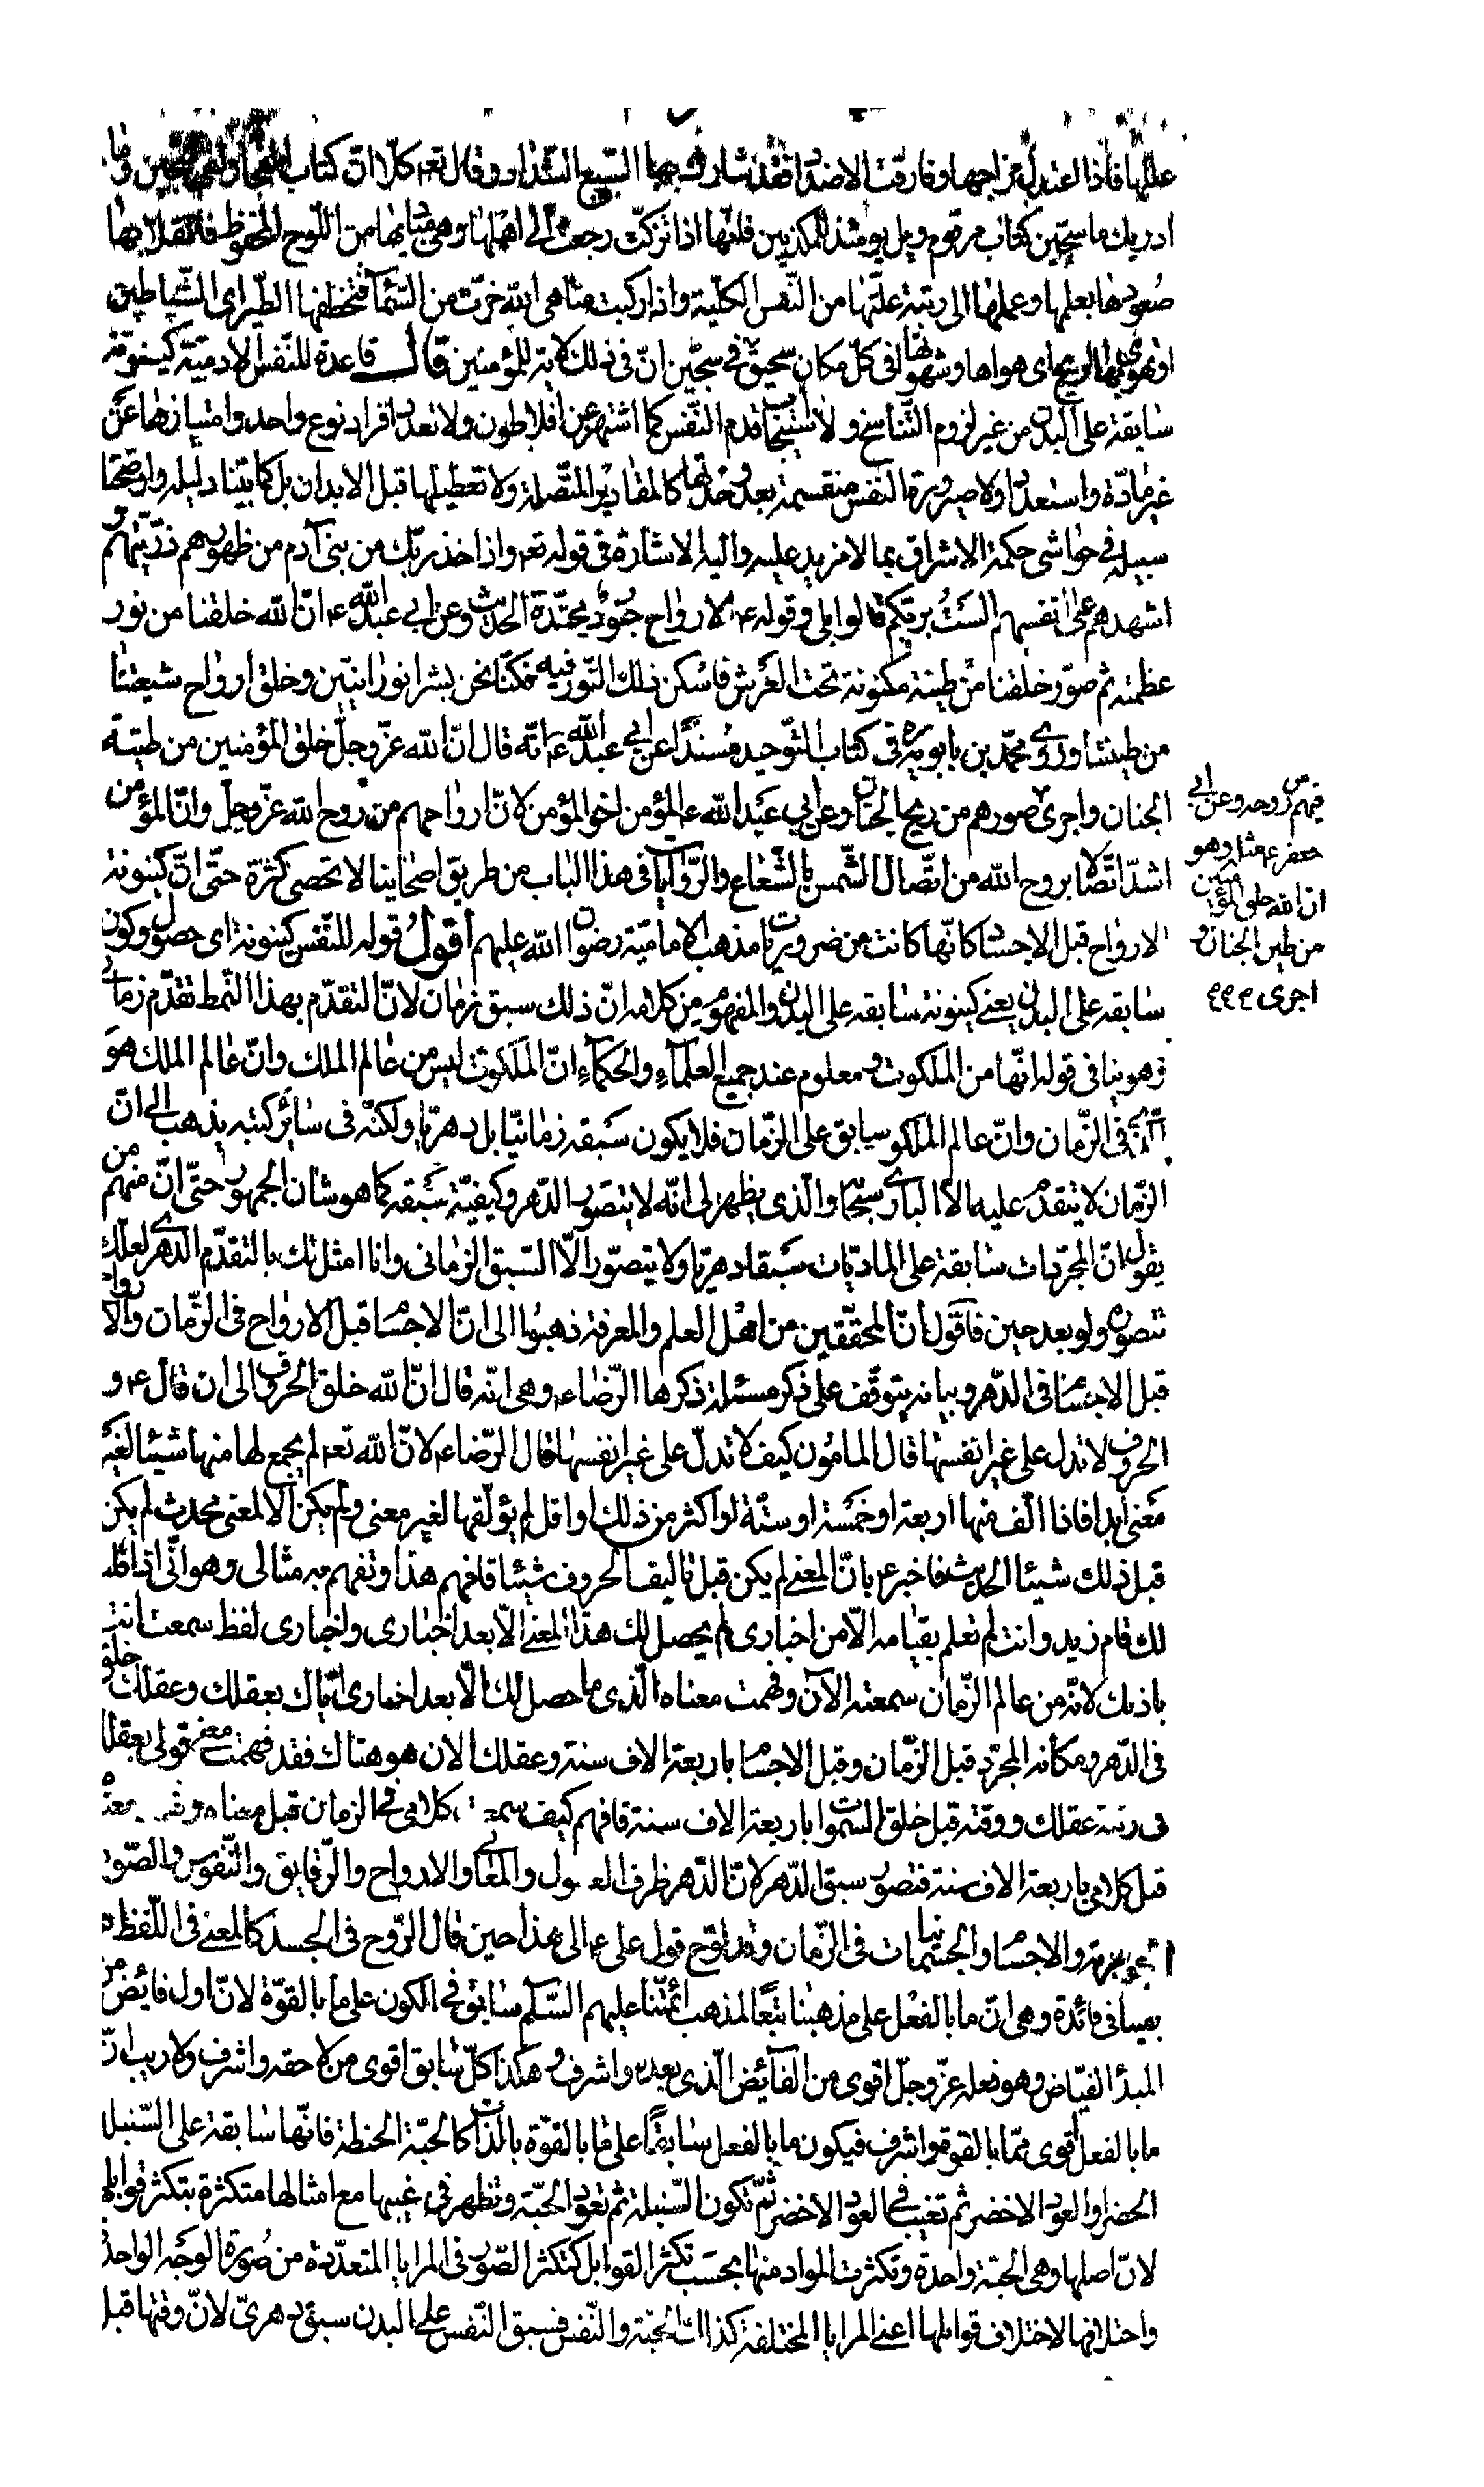 عللها فاذا اعتدل مزاجها وفارقت الاضداد فقد شارك بها السبع الشداد وقال تعه كلا ان كتاب الفجار لفى سجين وما
ادريك ما سجين كتاب مرقوم ويل يومئذ للمكذبين فانها اذا تزكّت رجعت الى اهلها وهى مباديها من اللوح المحفوظ
صعودها بعلمها وعملها الى رتبة علتها من النّفس الكلية واذا ركبت مناهى الله خرّت من السّماء فتخطفها الطّير اى الشّياطين
او تهوى بها الريح اى هواها وشهواتها فى كلّ مكان سحيق فى سجّين انّ فى ذلك لاية للمؤمنين قال قاعدة للنّفس الادمية كينونة
سابقة على البدن من غير لزوم التّناسخ ولا استيجاب قدم النّفس كما اشتهر عن افلاطون ولا تعدد افراد نوع واحد وامتيازها عن
غير مادّة واستعداد ولا صيرورة النفس منقسمة بعد وحدتها كالمقادير المتّصلة ولا تعطيلها قبل الابدان بل كما بيّنا دليله واوضحنا
سبيله فى حواشى حكمة الاشراق بما لا مزيد عليه واليه الاشارة فى قوله تعه واذ اخذ ربك من بنى آدم من ظهورهم ذرّيتهم و
اشهدهم على انفسهم الست بربّكم قالوا بلى وقوله ع الارواح جنود مجنّدة الحديث وعن ابى عبد الله ع انّ الله خلقنا من نور
عظمته ثم صوّر خلقنا من طينة مكنونة تحت العرش فاسكن ذلك النّور فيه فكنّا نحن بشرا نورانيّين وخلق ارواح شيعتنا
من طينتنا وروى محمّد بن بابويه ره فى كتاب التّوحيد مسندًا عن ابى عبد الله ع انّه قال انّ الله عزّ وجلّ خلق المؤمنين من طينة
الجنان واجرى صورهم من ريح الجنان وعن ابى عبد الله ع المؤمن اخو المؤمن لانّ ارواحهم من روح الله عزّ وجلّ وانّ المؤمن
اشدّ اتّصالا بروح الله من اتّصال الشّمس بالشّعاع والرّوايات فى هذا الباب من طريق اصحابنا لا تحصى كثرة حتّى انّ كينونة
الارواح قبل الاجساد كانّها كانت من ضروريات مذهب الامامية رضوان الله عليهم اقول قوله للنّفس كينونة اى حصول وكون
سابقة على البدن يعنى كينونة سابقة على البدن والمفهوم من كلامه انّ ذلك سبق زمان لانّ التقدّم بهذا النّمط تقدّم زمانى
وهو ينافى قوله انّها من الملكوت ومعلوم عند جميع العلماء والحكماء انّ الملكوت ليس من عالم الملك وانّ عالم الملك هو
فى الزّمان وانّ عالم الملكوت سابق على الزّمان فلا يكون سبقه زمانيّا بل دهريّا ولكنّه فى سائر كتبه يذهب الى انّ
الزّمان لا يتقدّم عليه الا البارى سبحانه والّذى يظهر لى انّه لا يتصوّر الدّهر وكيفيّة سبقه كما هو شان الجمهور حتّى انّ منهم من
يقول انّ المجردات سابقة على الماديّات سبقا دهريّا ولا يتصوّر الّا السّبق الزمانى وانا امثل لك بالتقدّم الدهرى لعلك
تتصوره ولو بعد حين فاقول انّ المحققين من اهل العلم والمعرفة ذهبوا الى انّ الاجسام قبل الارواح فى الزّمان والارواح
قبل الاجسام فى الدّهر وبيانه يتوقّف على ذكر مسئلة ذكرها الرّضا ع وهى انّه قال انّ الله خلق الحروف الى ان قال ع و
الحروف لا تدل على غير نفسها قال المامون كيف لا تدلّ على غير نفسها قال الرّضا ع لانّ الله تعه لم يجمع لها منها شيئا لغير
معنى ابدا فاذا الّف منها اربعة او خمسة او ستّة او اكثر من ذلك او اقل لم يؤلّفها لغير معنى ولم يكن الّا لمعنى محدث لم يكن
قبل ذلك شيئا الحديث فاخبر ع بانّ المعنى لم يكن قبل تاليف الحروف شيئا فافهم هذا وتفهم به مثالى وهو انّى اذا قلت
لك قام زيد وانت لم تعلم بقيامه الّا من اخبارى لم يحصل لك هذا المعنى الّا بعد اخبارى واخبارى لفظ سمعت انت
باذنك لانّه من عالم الزّمان سمعته الآن وفهمت معناه الّذى ما حصل لك الّا بعد اخبارى ايّاك بعقلك وعقلك خلق
فى الدّهر ومكانه المجرّد قبل الزّمان وقبل الاجسام باربعة الاف سنة وعقلك الان هو هناك فقد فهمت معنى قولى بعقلك
فى رتبة عقلك ووقته قبل خلق السّموات باربعة الاف سنة فافهم كيف كلامى فى الزمان قبل معناه
قبل كلامى باربعة الاف سنة فتصوّر سبق الدّهر لانّ الدّهر ظرف العقول والمعانى والارواح والرّقايق والنّفوس والصّور
والاجسام والجسمانيات فى الزّمان وقد لوّح قول على ع الى هذا حين قال الرّوح فى الجسد كالمعنى فى اللّفظ
فائدة وهى انّ ما بالفعل على مذهبنا تبعًا لمذهب ائمّتنا عليهم السّلم سابق فى الكون على ما بالقوّة لانّ اول فائض من
المبدأ الفيّاض وهو فعله عزّ وجلّ اقوى من الفائض الّذى بعده واشرف وهكذا كلّ سابق اقوى من لاحقه واشرف ولا ريب انّ
ما بالفعل اقوى ممّا بالقوة واشرف فيكون ما بالفعل سابقا على ما بالقوّة بالذات كالحبّة الحنطة فانّها سابقة على السّنبل
الخضر او العود الاخضر ثم تغيب فى العود الاخضر ثمّ تكون السّنبلة ثم تعود الحبّة وتظهر فى غيبها مع امثالها متكثرة بتكثر قوابلها
لانّ اصلها وهى الحبّة واحدة وتكثرت المواد منها بحسب تكثر القوابل كتكثر الصّور فى المرايا المتعدّدة من صورة الوجه الواحد
واختلافها لاختلاف قوابلها اعنى المرايا المختلفة كذات الحبّة والنّفس فسبق النّفس على البدن سبق جوهرىّ لانّ وقتها قبل
فيهم من روحه وعن ابى
جعفر ع مثله وهو
ان الله خلق المؤمنين
من طين الجنان و
اجرى